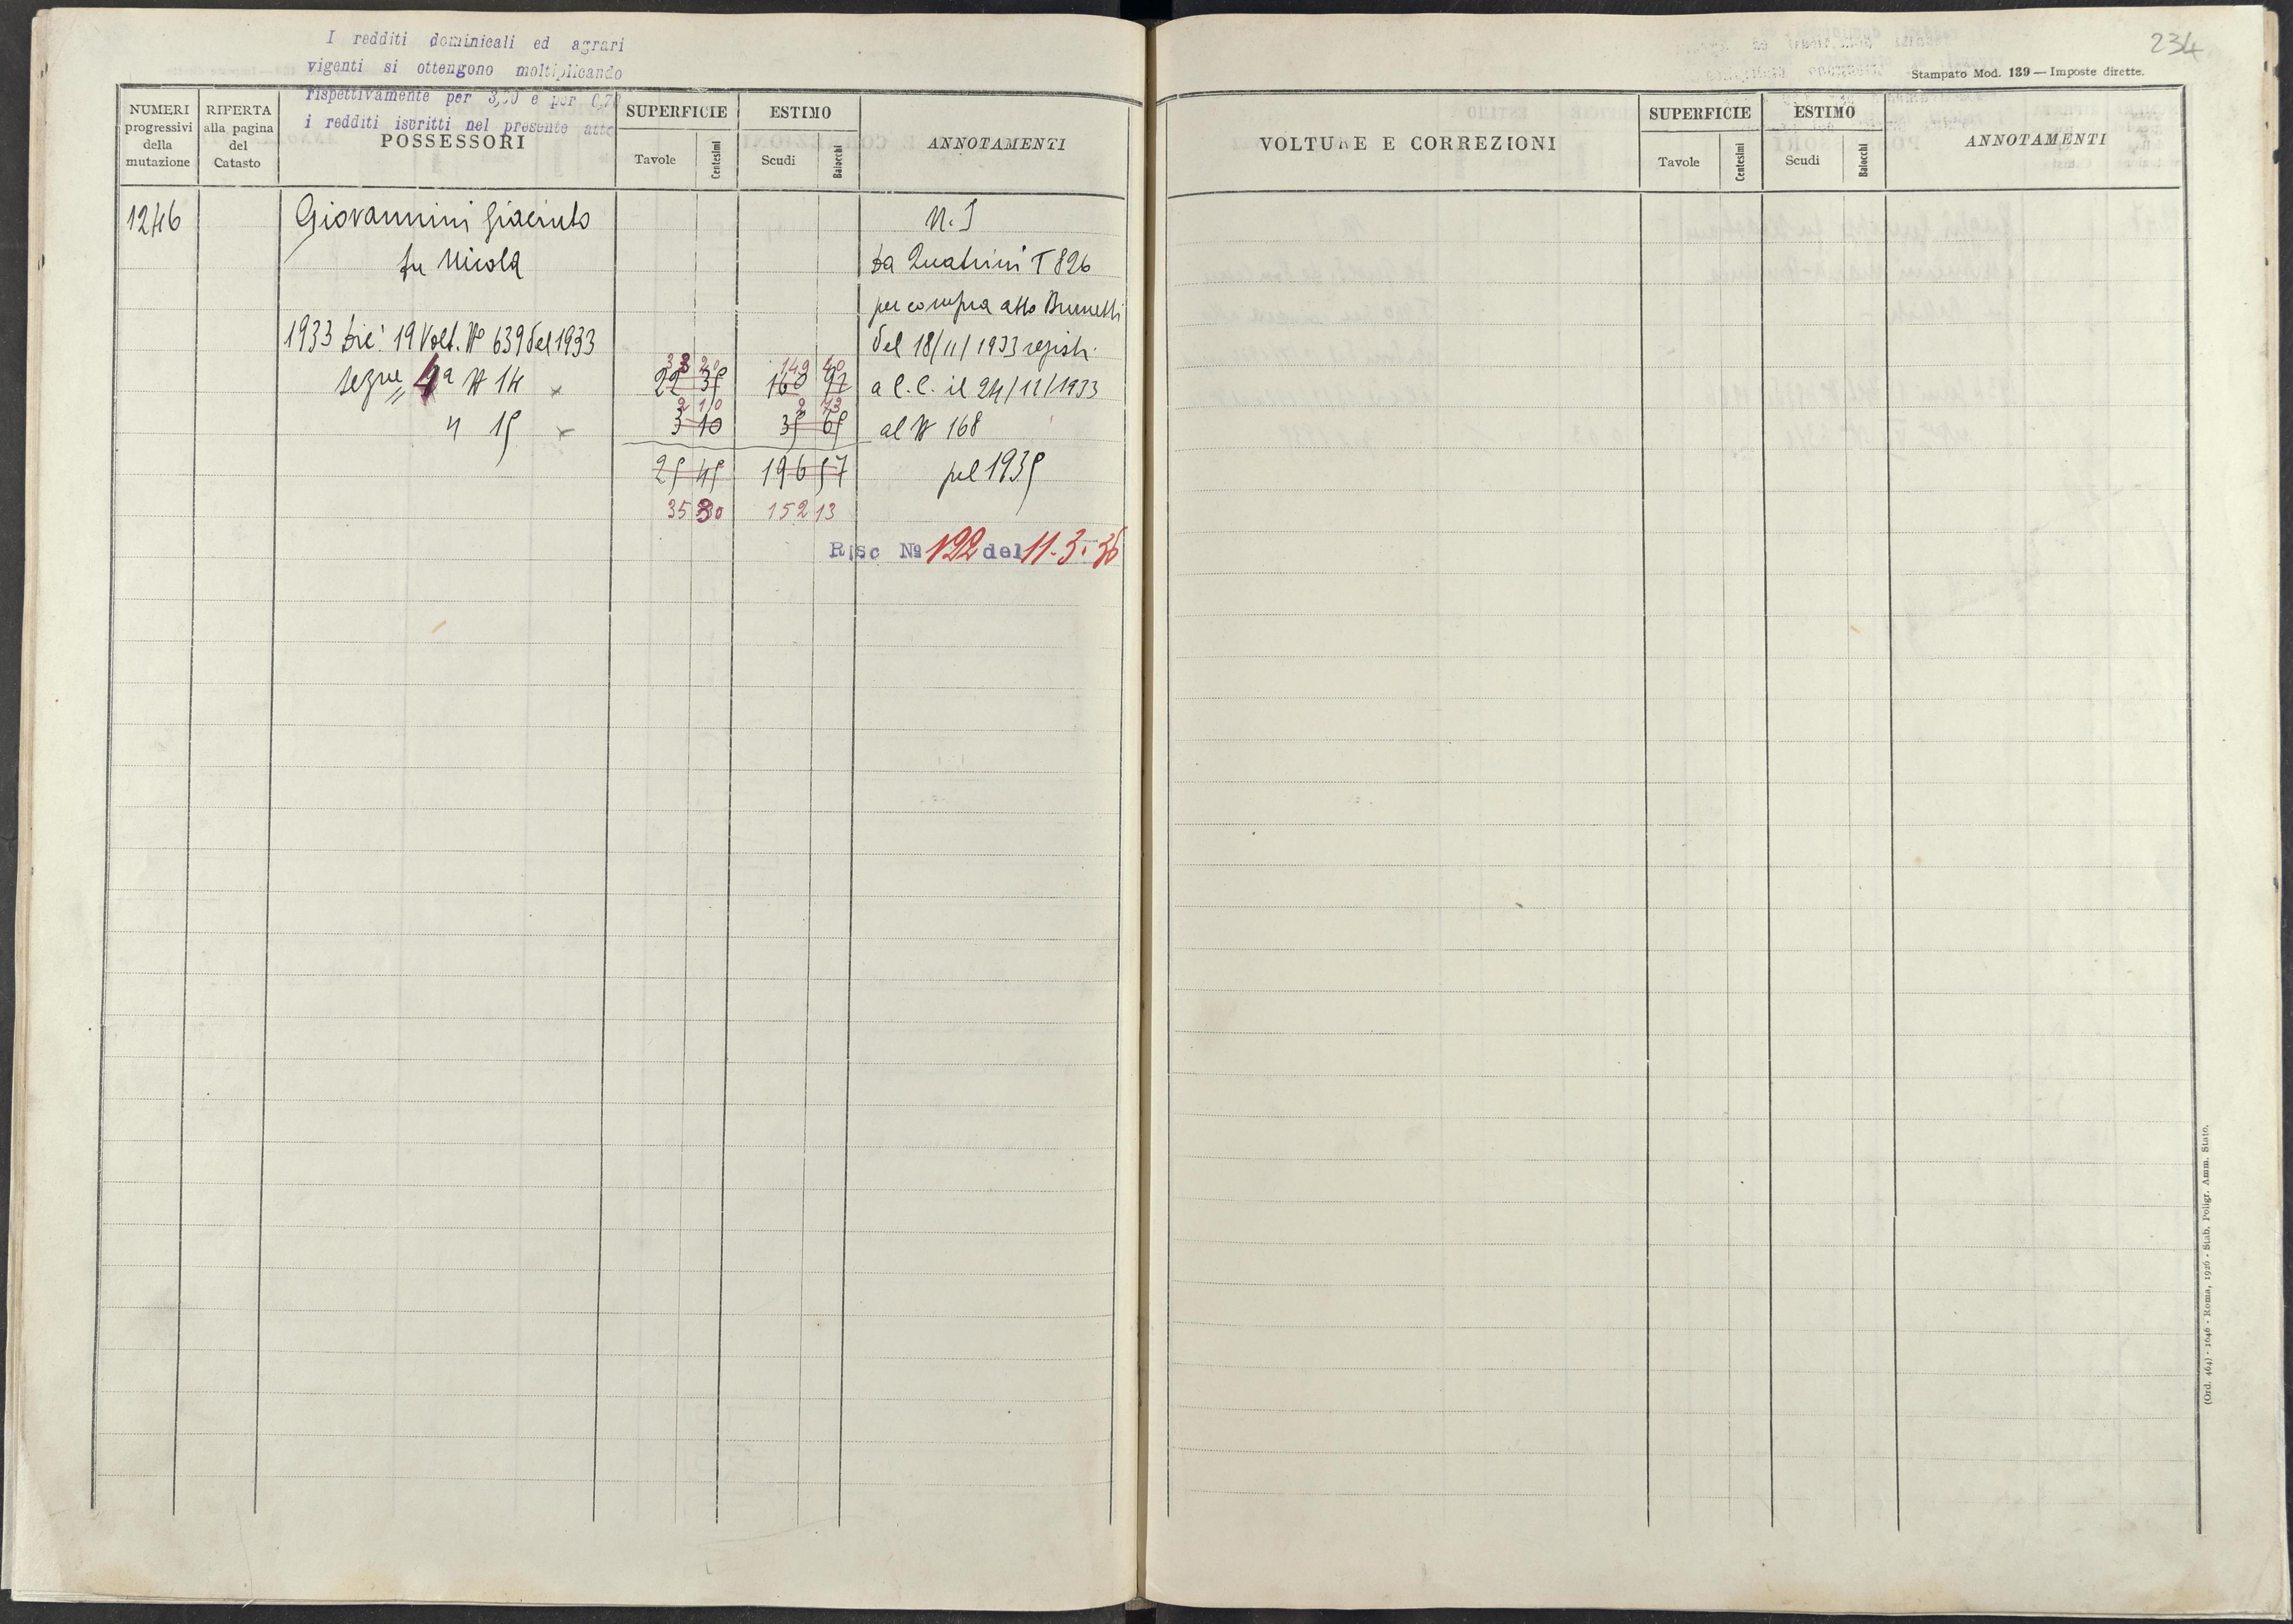 I redditi dominicali ed agrari
vigenti si ottengono moltiplicando
rispettivamente per 3,70 e per 0,70
i redditi iscritti nel presente atto
NUMERI progressivi della mutazione
RIFERTA alla pagina del Catasto
POSSESSORI
SUPERFICIE
Tavole
Centesimi
ESTIMO
Scudi
Baiocchi
ANNOTAMENTI
1246
Giovannini Giacinto
fu Nicola
1933 Dic. 19 Volt. N° 639 del 1933
Sezne 4a N 14
" 15
33 20
22 35
2 10
3 10
25 45
35 30
149 40
160 92
2 73
35 65
196 57
152 13
N. I
Da Quatrini T 826
per compra atto Brunetti
del 18/11/1933 registr.
a C. C. il 24/11/1933
al N 168
pel 1935
Risc № 122 del 11.3.36
234
Stampato Mod. 139 — Imposte dirette.
VOLTURE E CORREZIONI
SUPERFICIE
Tavole
Centesimi
ESTIMO
Scudi
Baiocchi
ANNOTAMENTI
(Ord. 464) - 1646 - Roma, 1926 - Stab. Poligr. Amm. Stato.